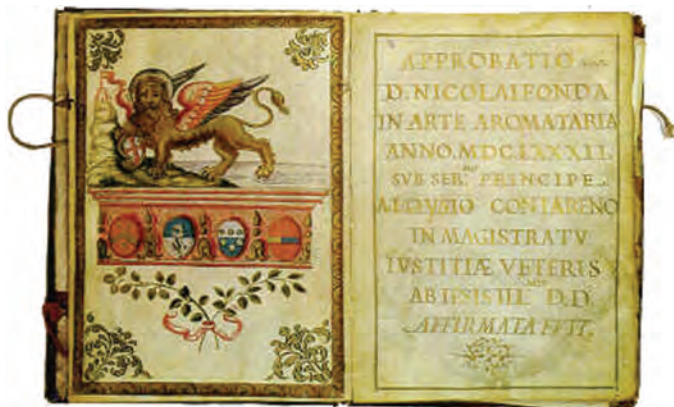 APPROBATIO
D. NICOLAI FONDA
IN ARTE AROMATARIA
ANNO. MDCLXXXII.
SVB SER.mo PRINCIPE
ALOYSIO CONTARENO
IN MAGISTRATV
IVSTITIÆ VETERIS
AB IPSIS ILL. D.D.
AFFIRMATA FVIT.